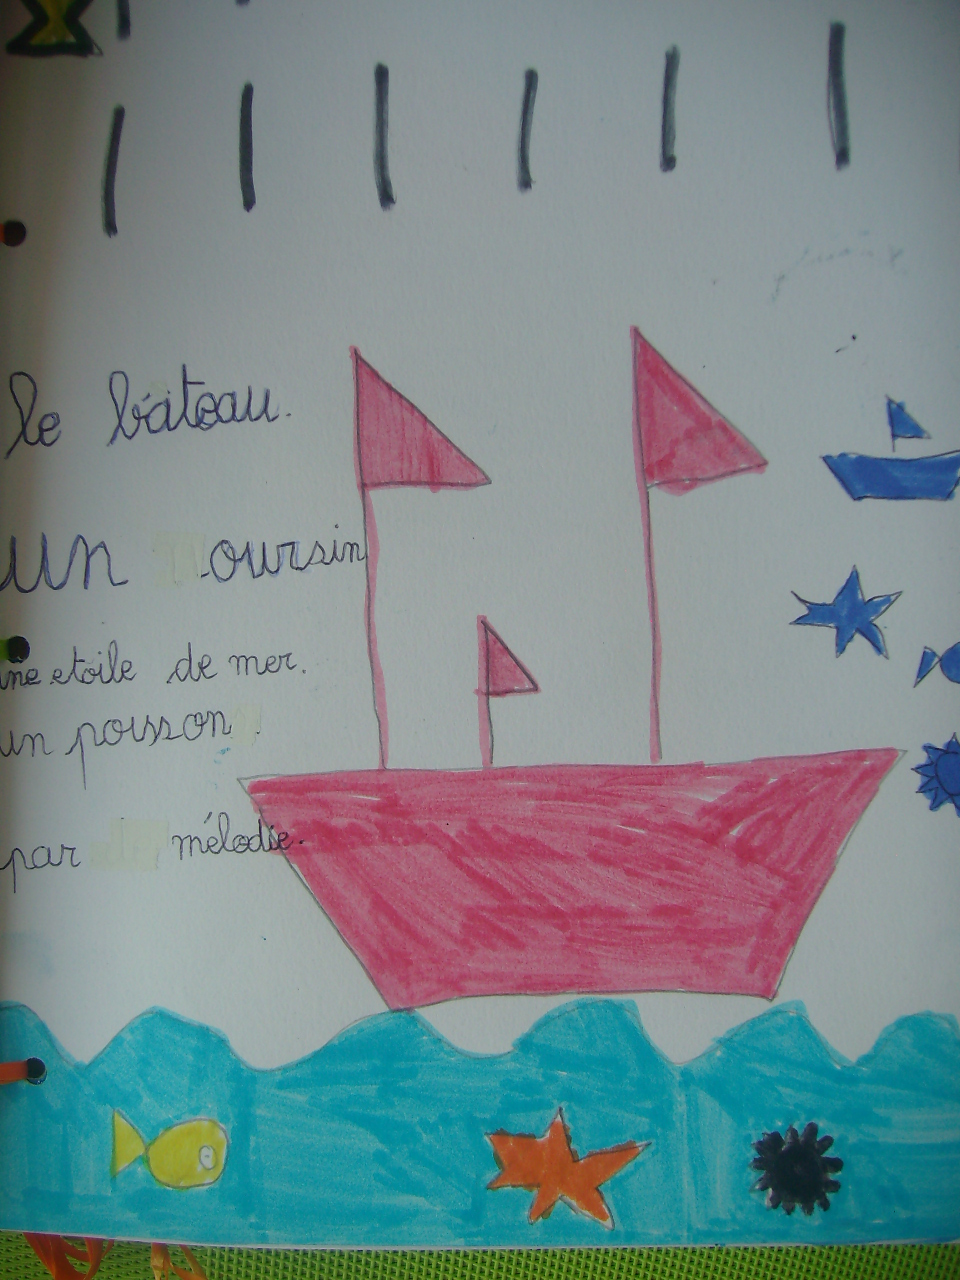 le bâteau.
un oursin
une etoile de mer.
un poisson.
par mélodie.